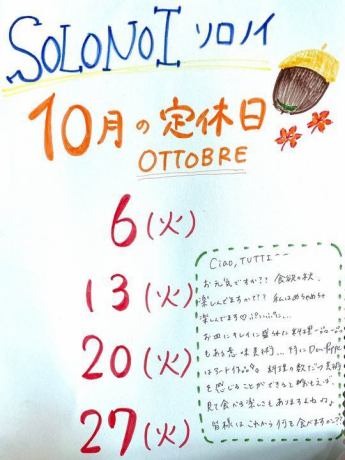 SOLONOI ソロノイ
10月の定休日
OTTOBRE
6(火)
13(火)
20(火)
27(火)
Ciao, TUTTI~~
お元気ですか?? 食欲の秋、
楽しんでますか?? 私はめちゃめちゃ
楽しんでます♡
お皿にキレイに盛られた料理
もある意味美術... 特に
は 料理の数だけ美術
を感じることができると
見て食べる楽しさもありますよね♪
皆様はこれから何を食べますか??